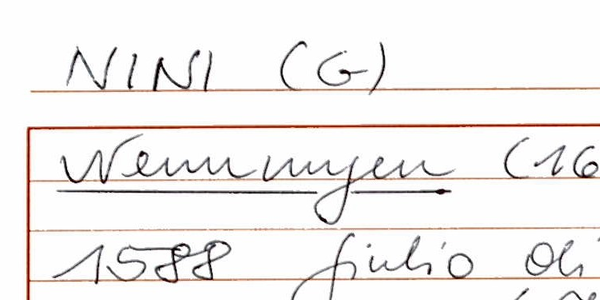 NINI (G)
Wemmingen (16
1588 Giulio di